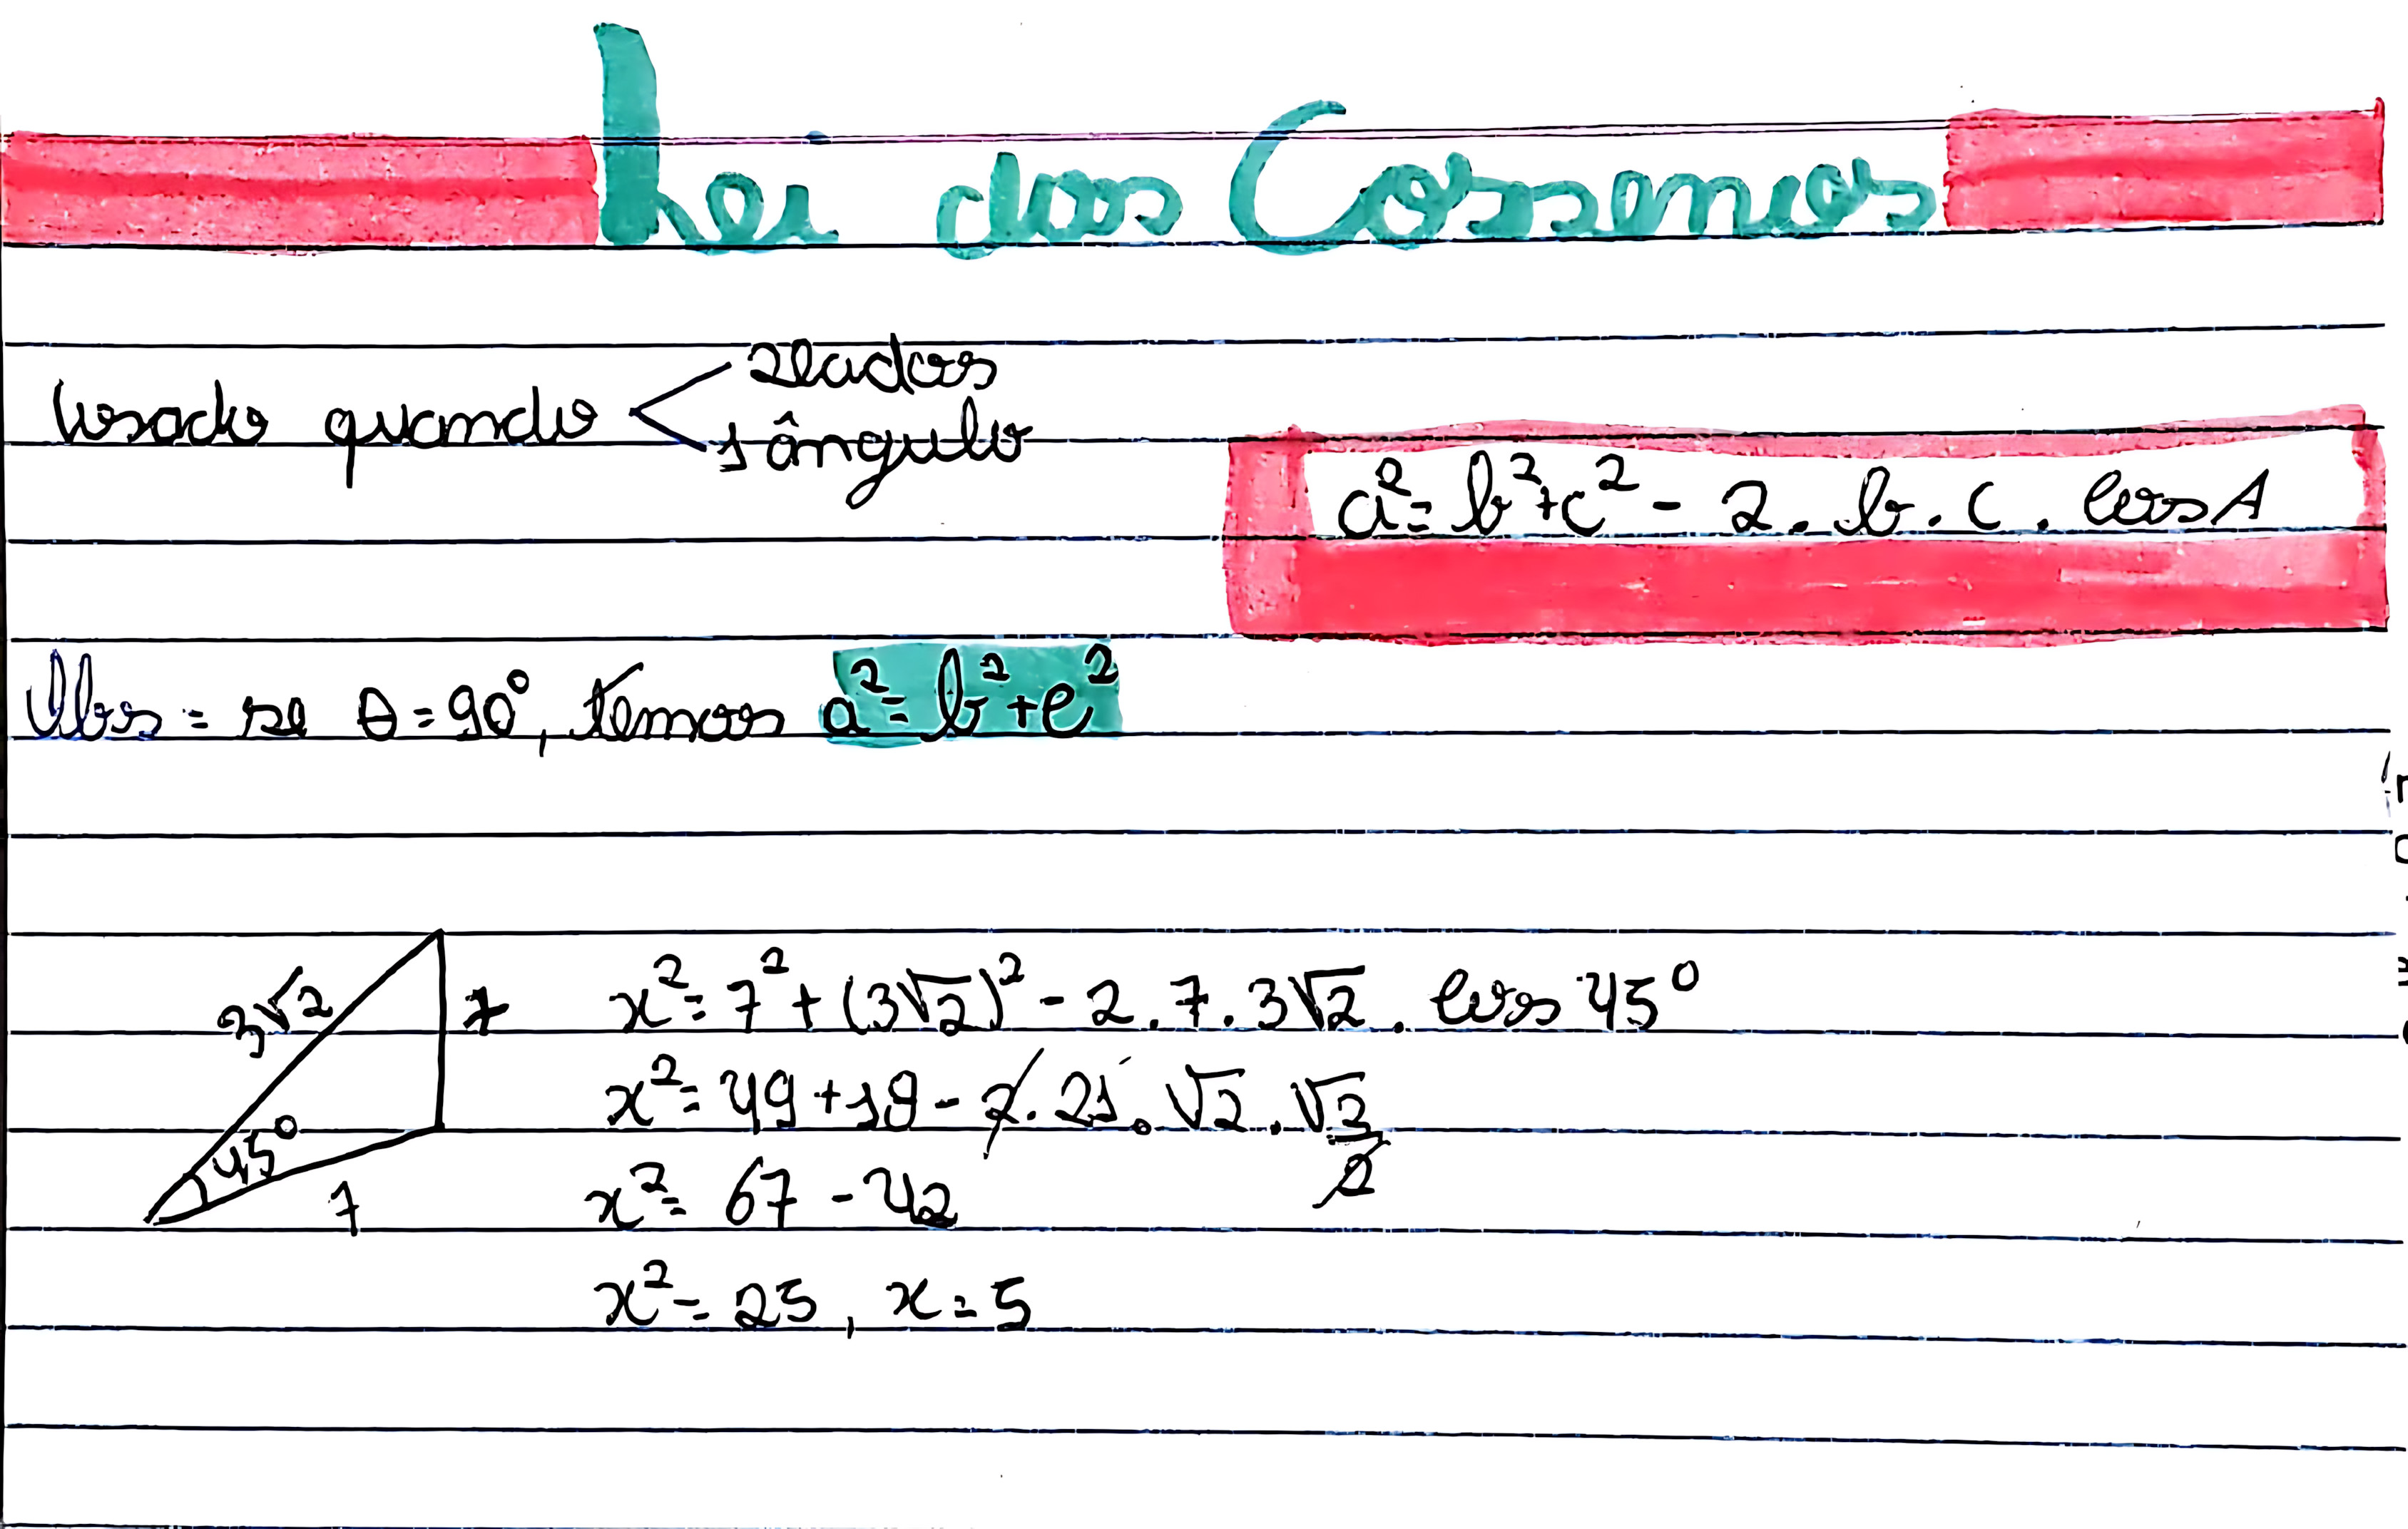 Lei dos Cossenos
Usado quando < 2 lados
1 ângulo
a² = b² + c² - 2 . b . c . cos A
Obs = se θ = 90°, temos a² = b² + c²
3√2
x
45°
7
x² = 7² + (3√2)² - 2 . 7 . 3√2 . cos 45°
x² = 49 + 18 - 2 . 21 . √2 . √2/2
x² = 67 - 42
x² = 25 , x = 5